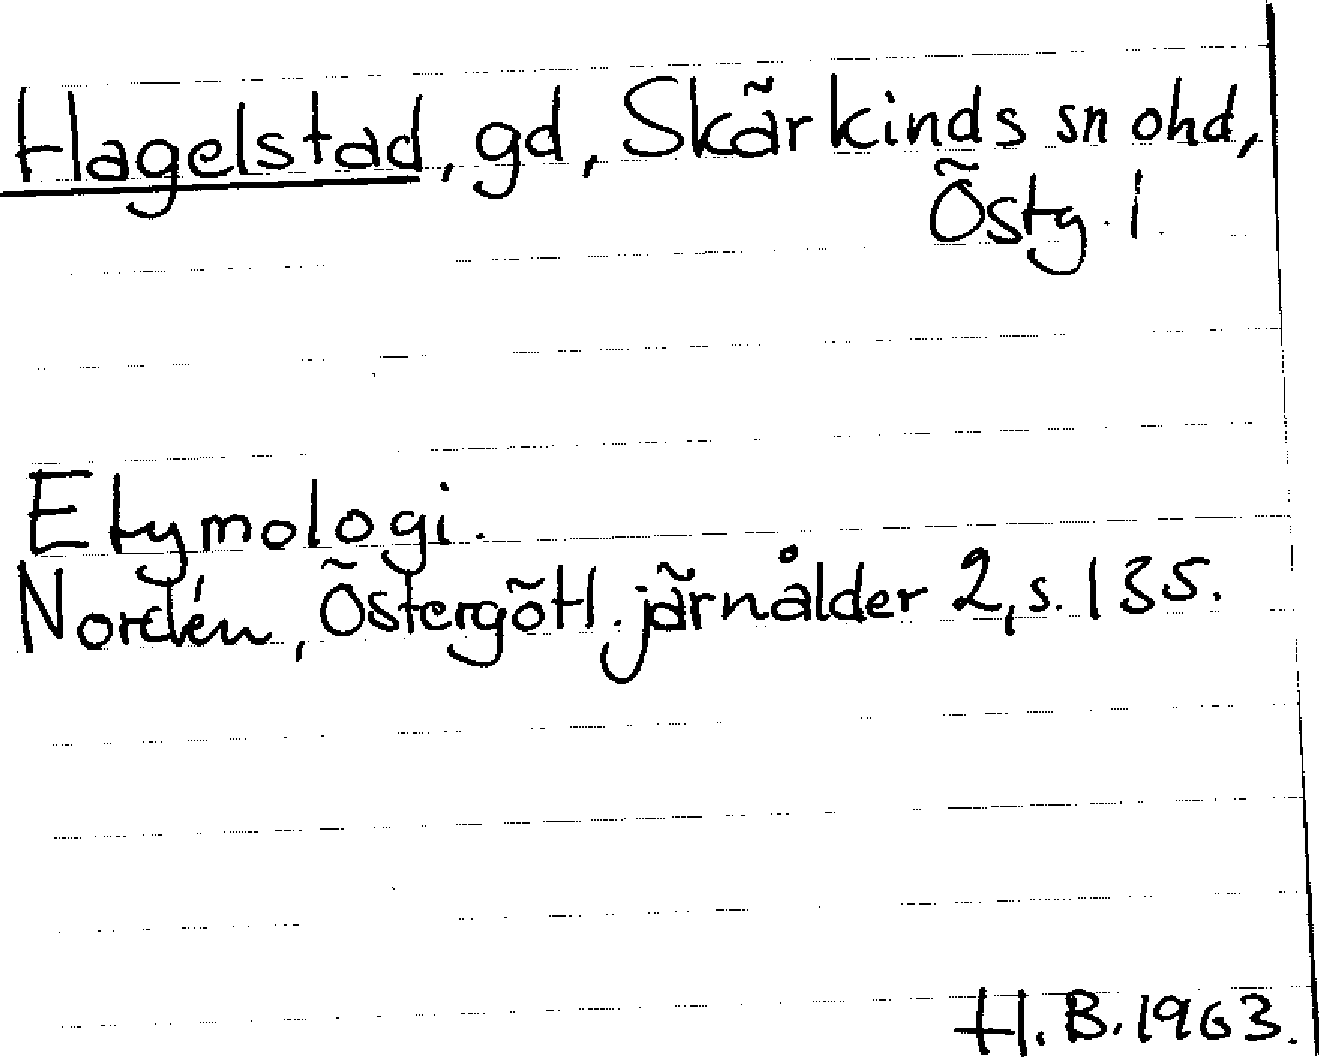 Hagelstad, gd, Skärkinds sn ohd,
Östg. l.
Etymologi.
Nordén, Östergötl. järnålder 2, s. 135.
H. B. 1963.